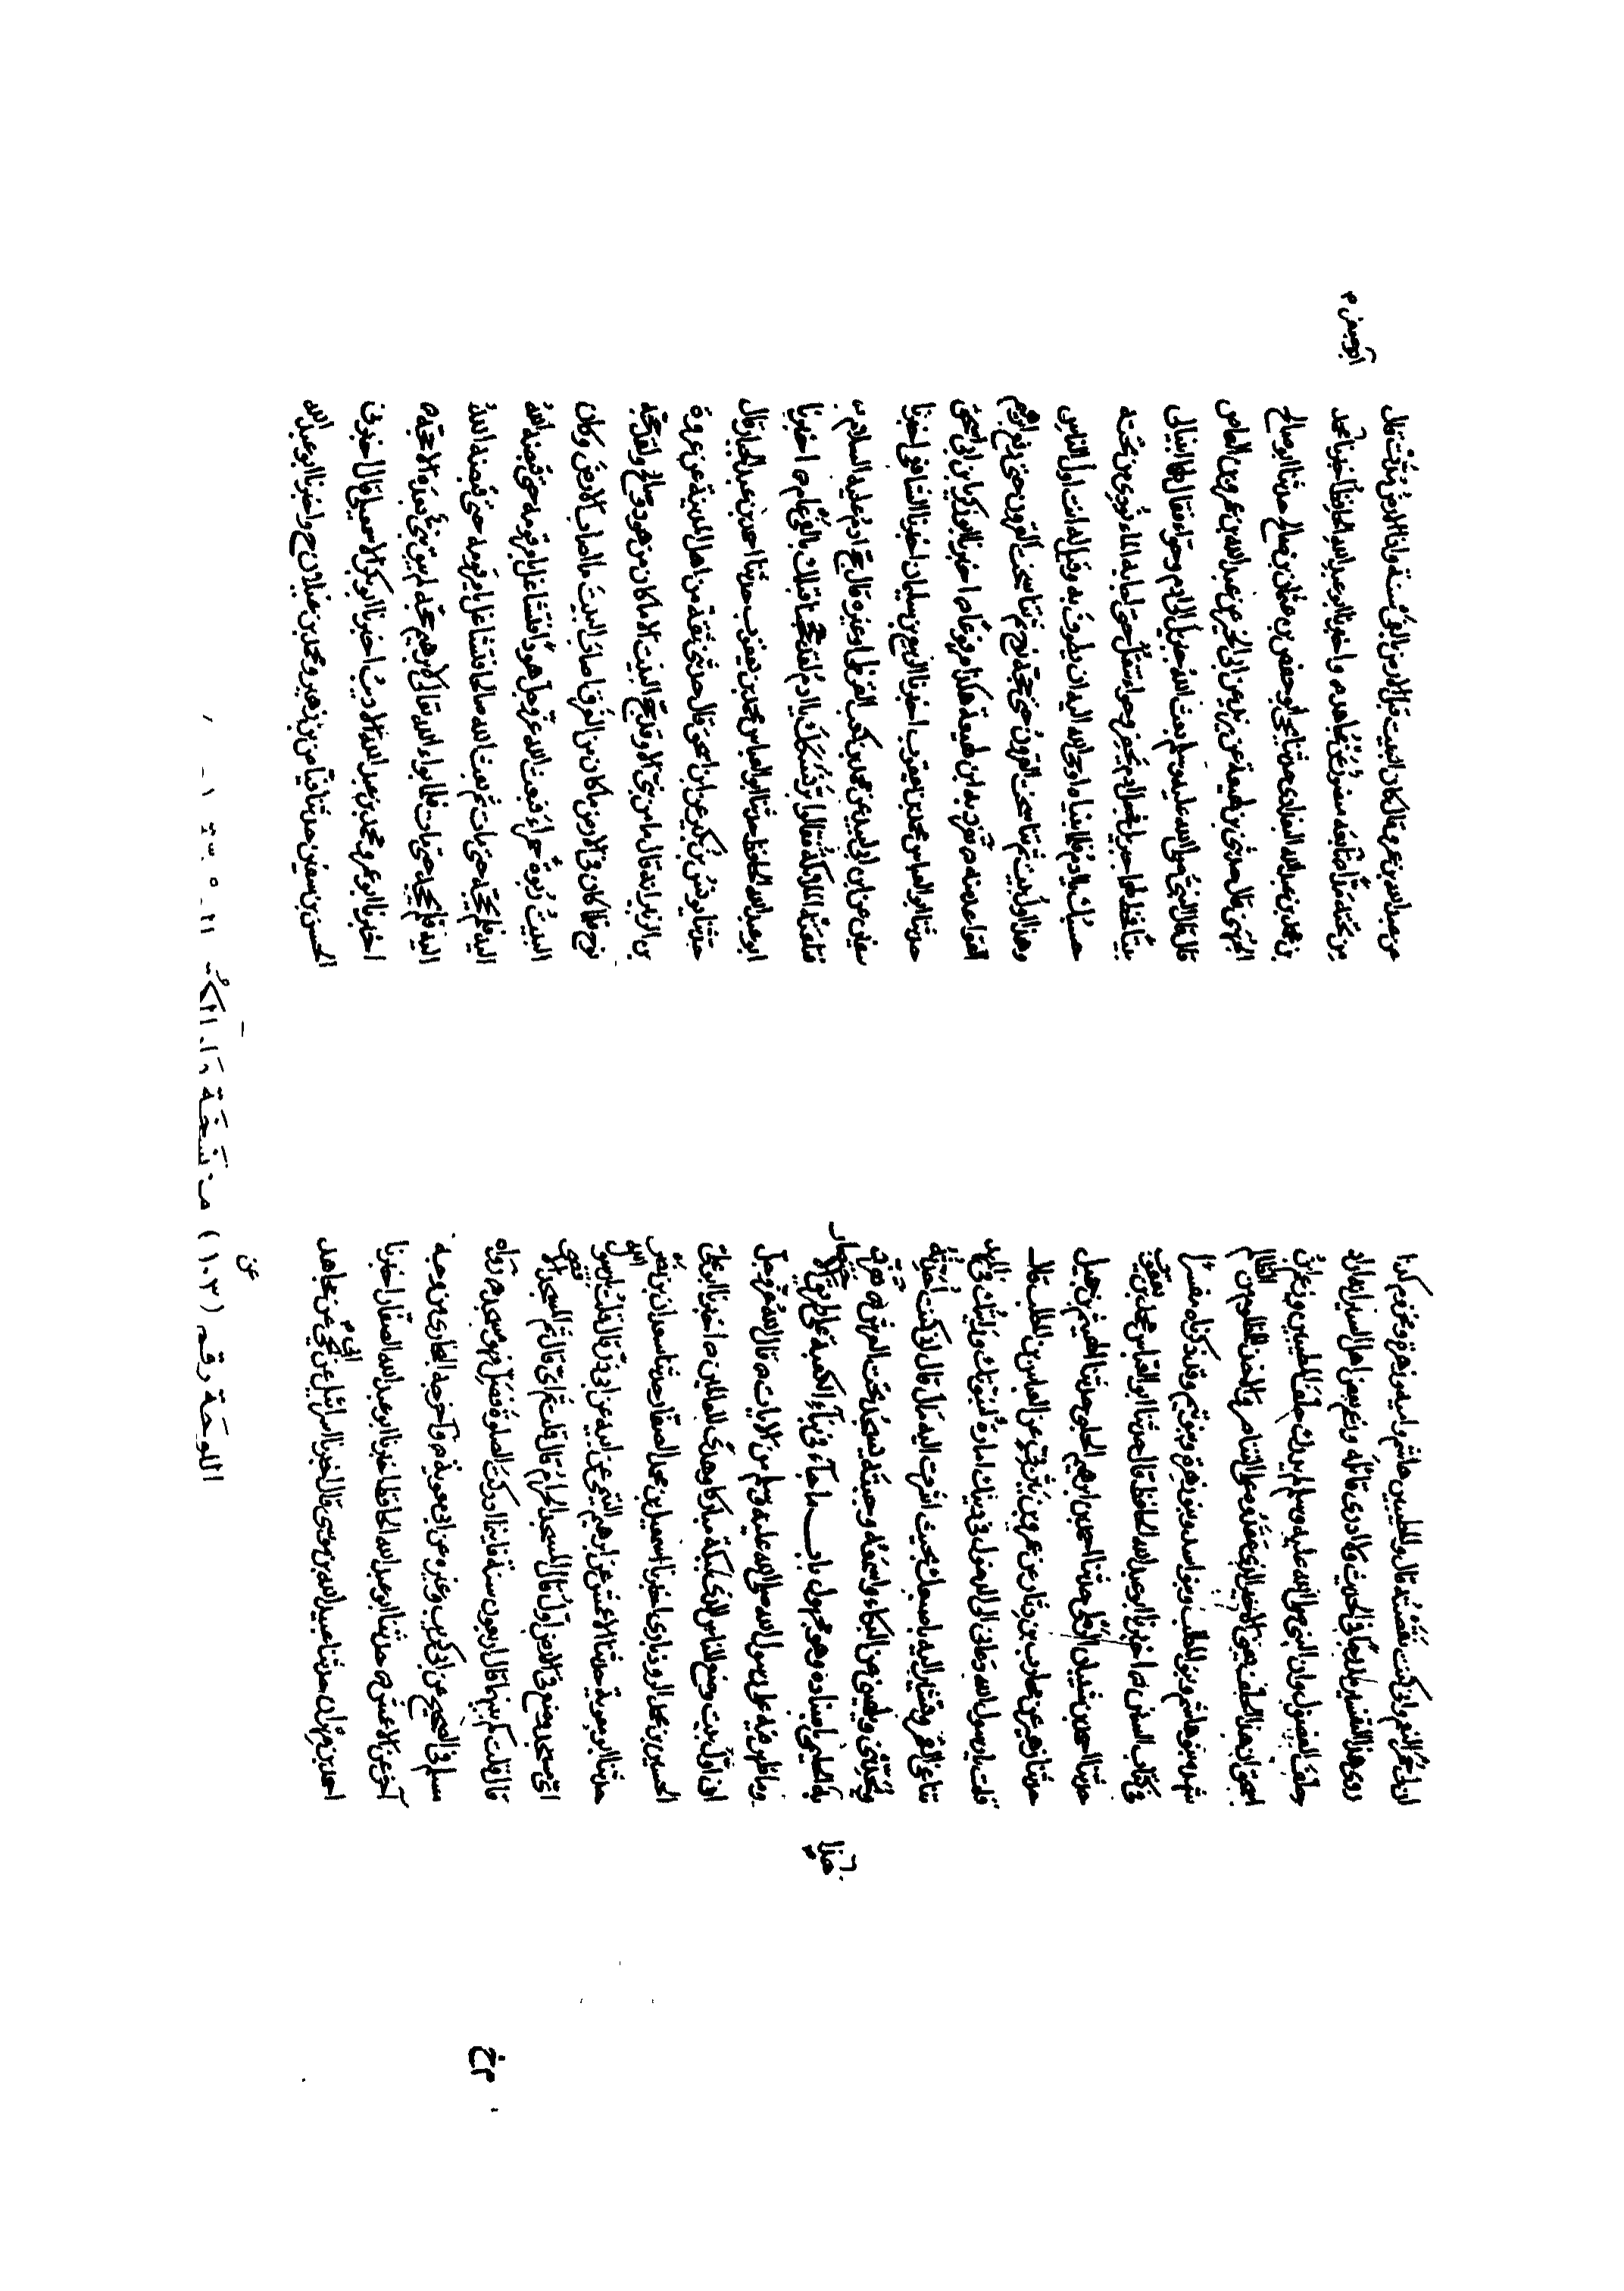 ابل حمر النعم واني كنت نقضته قال والمطيبين هاشم واميه وزهرة ومخزوم كذا
روى هذا التفسير مدرجا في الحديث ولا ادرى قائله وزعم بعض اهل السير انه اراد
حلف الفضول وان النبي صلى الله عليه وسلم لم يدرك حلف المطيبين وزعم ابن
اسحق ان هذا الحلف يعني الاخير الذي عقدوه على التناصر والاخذ للمظلوم من الظالم
شهده بنو هاشم وبنو المطلب وبنو اسد وبنو زهرة وبنو تيم وقد ذكرناه مفسرا
في كتاب السنن ه اخبرنا ابو عبد الله الحافظ قال حدثنا ابو العباس محمد بن يعقوب
حدثنا احمد بن شيبان الرملي حدثنا احمد بن ابرهيم الحبلي حدثنا الهيثم بن جميل
حدثنا زهير عن محارب بن دثار عن عمرو بن يثربي عن العباس بن عبد المطلب قال
قلت يا رسول الله دعاني الى الدخول في دينك امارة لنبوتك رايتك في المهد
تناغي القمر وتشير اليه باصبعك فحيث اشرت اليه مال قال اني كنت احدثه
ويحدثني ويلهيني عن البكاء واسمع وجبته يسجد تحت العرش ه تفرد
به الحلبي باسناده وهو مجهول باب ما جاء في بناء الكعبة على طريق الاختصار
وما ظهر فيه على رسول الله صلى الله عليه وسلم من الايات ه قال الله عز وجل
ان اول بيت وضع للناس للذي ببكة مباركا وهدى للعالمين ه اخبرنا ابو علي
الحسين بن محمد الروذباري اخبرنا اسمعيل بن محمد الصفار حدثنا سعدان بن نصر
حدثنا ابو معوية حدثنا الاعمش عن ابرهيم التيمي عن ابيه عن ابي ذر قال قلت يا رسول الله
اي مسجد وضع في الارض اول قال المسجد الحرام قال قلت ثم اي قال ثم المسجد الاقصى
قال قلت كم بينهما قال اربعون سنة فاينما ادركت الصلوة فصل فهو مسجد ه رواه
مسلم في الصحيح عن ابي كريب وغيره عن ابي معوية ه واخرجه البخاري من وجه
آخر عن الاعمش ه حدثنا ابو عبد الله الحافظ اخبرنا ابو عبد الله الصفار اخبرنا
احمد بن مهران حدثنا عبيد الله بن موسى قال اخبرنا اسرائيل عن ابي يحيى عن مجاهد
عن
عن عبد الله بن عمرو قال كان البيت قبل الارض بالفي سنة واذا الارض مدت قال
من تحته مدا تابعه منصور عن مجاهد ه واخبرنا ابو عبد الله الحافظ اخبرنا ابو جعفر محمد
بن محمد بن عبد الله البغدادي حدثنا يحيى بن عثمن بن صالح حدثنا ابو صالح
الجهني قال حدثني ابن لهيعة عن يزيد عن ابي الخير عن عبد الله بن عمرو بن العاص
قال قال النبي صلى الله عليه وسلم بعث الله جبريل الى ادم وحوا فقال لهما ابنيا لي
بيتا فخط لهما جبريل فجعل ادم يحفر وحوا تنقل حتى اجابه الماء نودي من تحته
حسبك يا ادم فلما بنياه اوحى الله اليه ان يطوف به وقيل له انت اول الناس
وهذا اول بيت ثم تناسخت القرون حتى حجه نوح ثم تناسخت القرون حتى رفع ابرهيم
القواعد منه ه تفرد به ابن لهيعة هكذا مرفوعا ه اخبرنا ابو زكريا بن ابي اسحق
حدثنا ابو العباس محمد بن يعقوب اخبرنا الربيع بن سليمان اخبرنا الشافعي اخبرنا
سفين عن ابن ابي لبيد عن محمد بن كعب القرظي او غيره قال حج ادم عليه السلام
فلقيته الملائكة فقالوا بر نسكك يا ادم لقد حججنا قبلك بالفي عام ه اخبرنا
ابو عبد الله الحافظ حدثنا ابو العباس محمد بن يعقوب حدثنا احمد بن عبد الجبار قال
حدثنا يونس بن بكير عن ابن اسحق قال حدثني ثقة من اهل المدينة عن عروة
بن الزبير انه قال ما من نبي الا وقد حج البيت الا ما كان من هود وصالح ولقد حجه
نوح فلما كان في الارض ما كان من الغرق اصاب البيت ما اصاب الارض وكان
البيت ربوة حمراء فبعث الله عز وجل هودا فتشاغل بامر قومه حتى قبضه الله
اليه فلم يحجه حتى مات ثم بعث الله صالحا فتشاغل بامر قومه حتى قبضه الله
اليه فلم يحجه حتى مات فلما بوأه الله تعالى لابرهيم حجه ثم لم يبق نبي بعده الا حجه ه
اخبرنا ابو عمرو محمد بن عبد الله الاديب اخبرنا ابو بكر الاسمعيلي قال اخبرني
الحسن بن سفين حدثنا فياض بن زهير ومحمود بن غيلان ح واخبرنا ابو عبد الله
اللوحة رقم (١٠٣) من نسخة